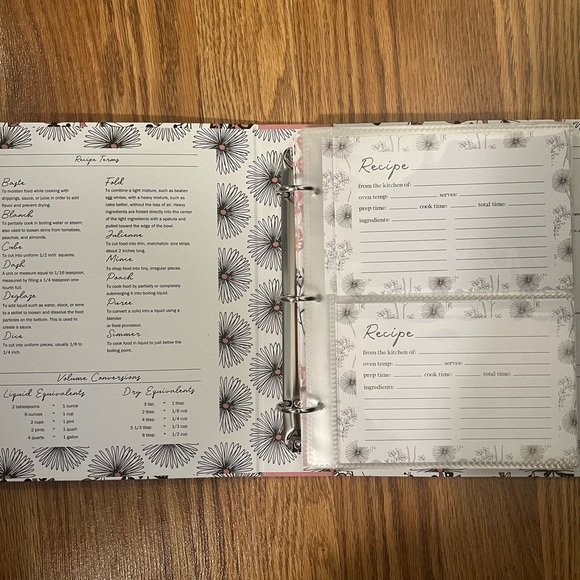 Recipe Terms
Baste
To moisten food while cooking with
drippings, sauce, or juice in order to add
flavor and prevent drying.
Blanch
To partially cook in boiling water or steam;
also used to loosen skins from tomatoes,
peaches, and almonds.
Cube
To cut into uniform 1/2 inch squares.
Dash
A unit or measure equal to 1/16 teaspoon,
measured by filling a 1/4 teaspoon one-
fourth full.
Deglaze
To add liquid such as water, stock, or wine
to a skillet to loosen and dissolve the food
particles on the bottom. This is used to
create a sauce.
Dice
To cut into uniform pieces, usually 1/8 to
1/4 inch.
Fold
To combine a light mixture, such as beaten
egg whites, with a heavy mixture, such as
cake batter, without the loss of air. Heavy
ingredients are folded directly into the center
of the light ingredients with a spatula and
pulled toward the edge of the bowl.
Julienne
To cut food into thin, matchstick size strips
about 2 inches long.
Mince
To chop food into tiny, irregular pieces.
Poach
To cook food by partially or completely
submerging it into boiling liquid.
Puree
To convert a solid into a liquid using a
blender
or food processor.
Simmer
To cook food in liquid to just below the
boiling point.
Volume Conversions
Liquid Equivalents
2 tablespoons = 1 ounce
8 ounces = 1 cup
2 cups = 1 pint
2 pints = 1 quart
4 quarts = 1 gallon
Dry Equivalents
3 tsp = 1 tbsp
2 tbsp = 1/8 cup
4 tbsp = 1/4 cup
5 1/3 tbsp = 1/3 cup
8 tbsp = 1/2 cup
Recipe
from the kitchen of:
oven temp: serves:
prep time: cook time: total time:
ingredients:
Recipe
from the kitchen of:
oven temp: serves:
prep time: cook time: total time:
ingredients: